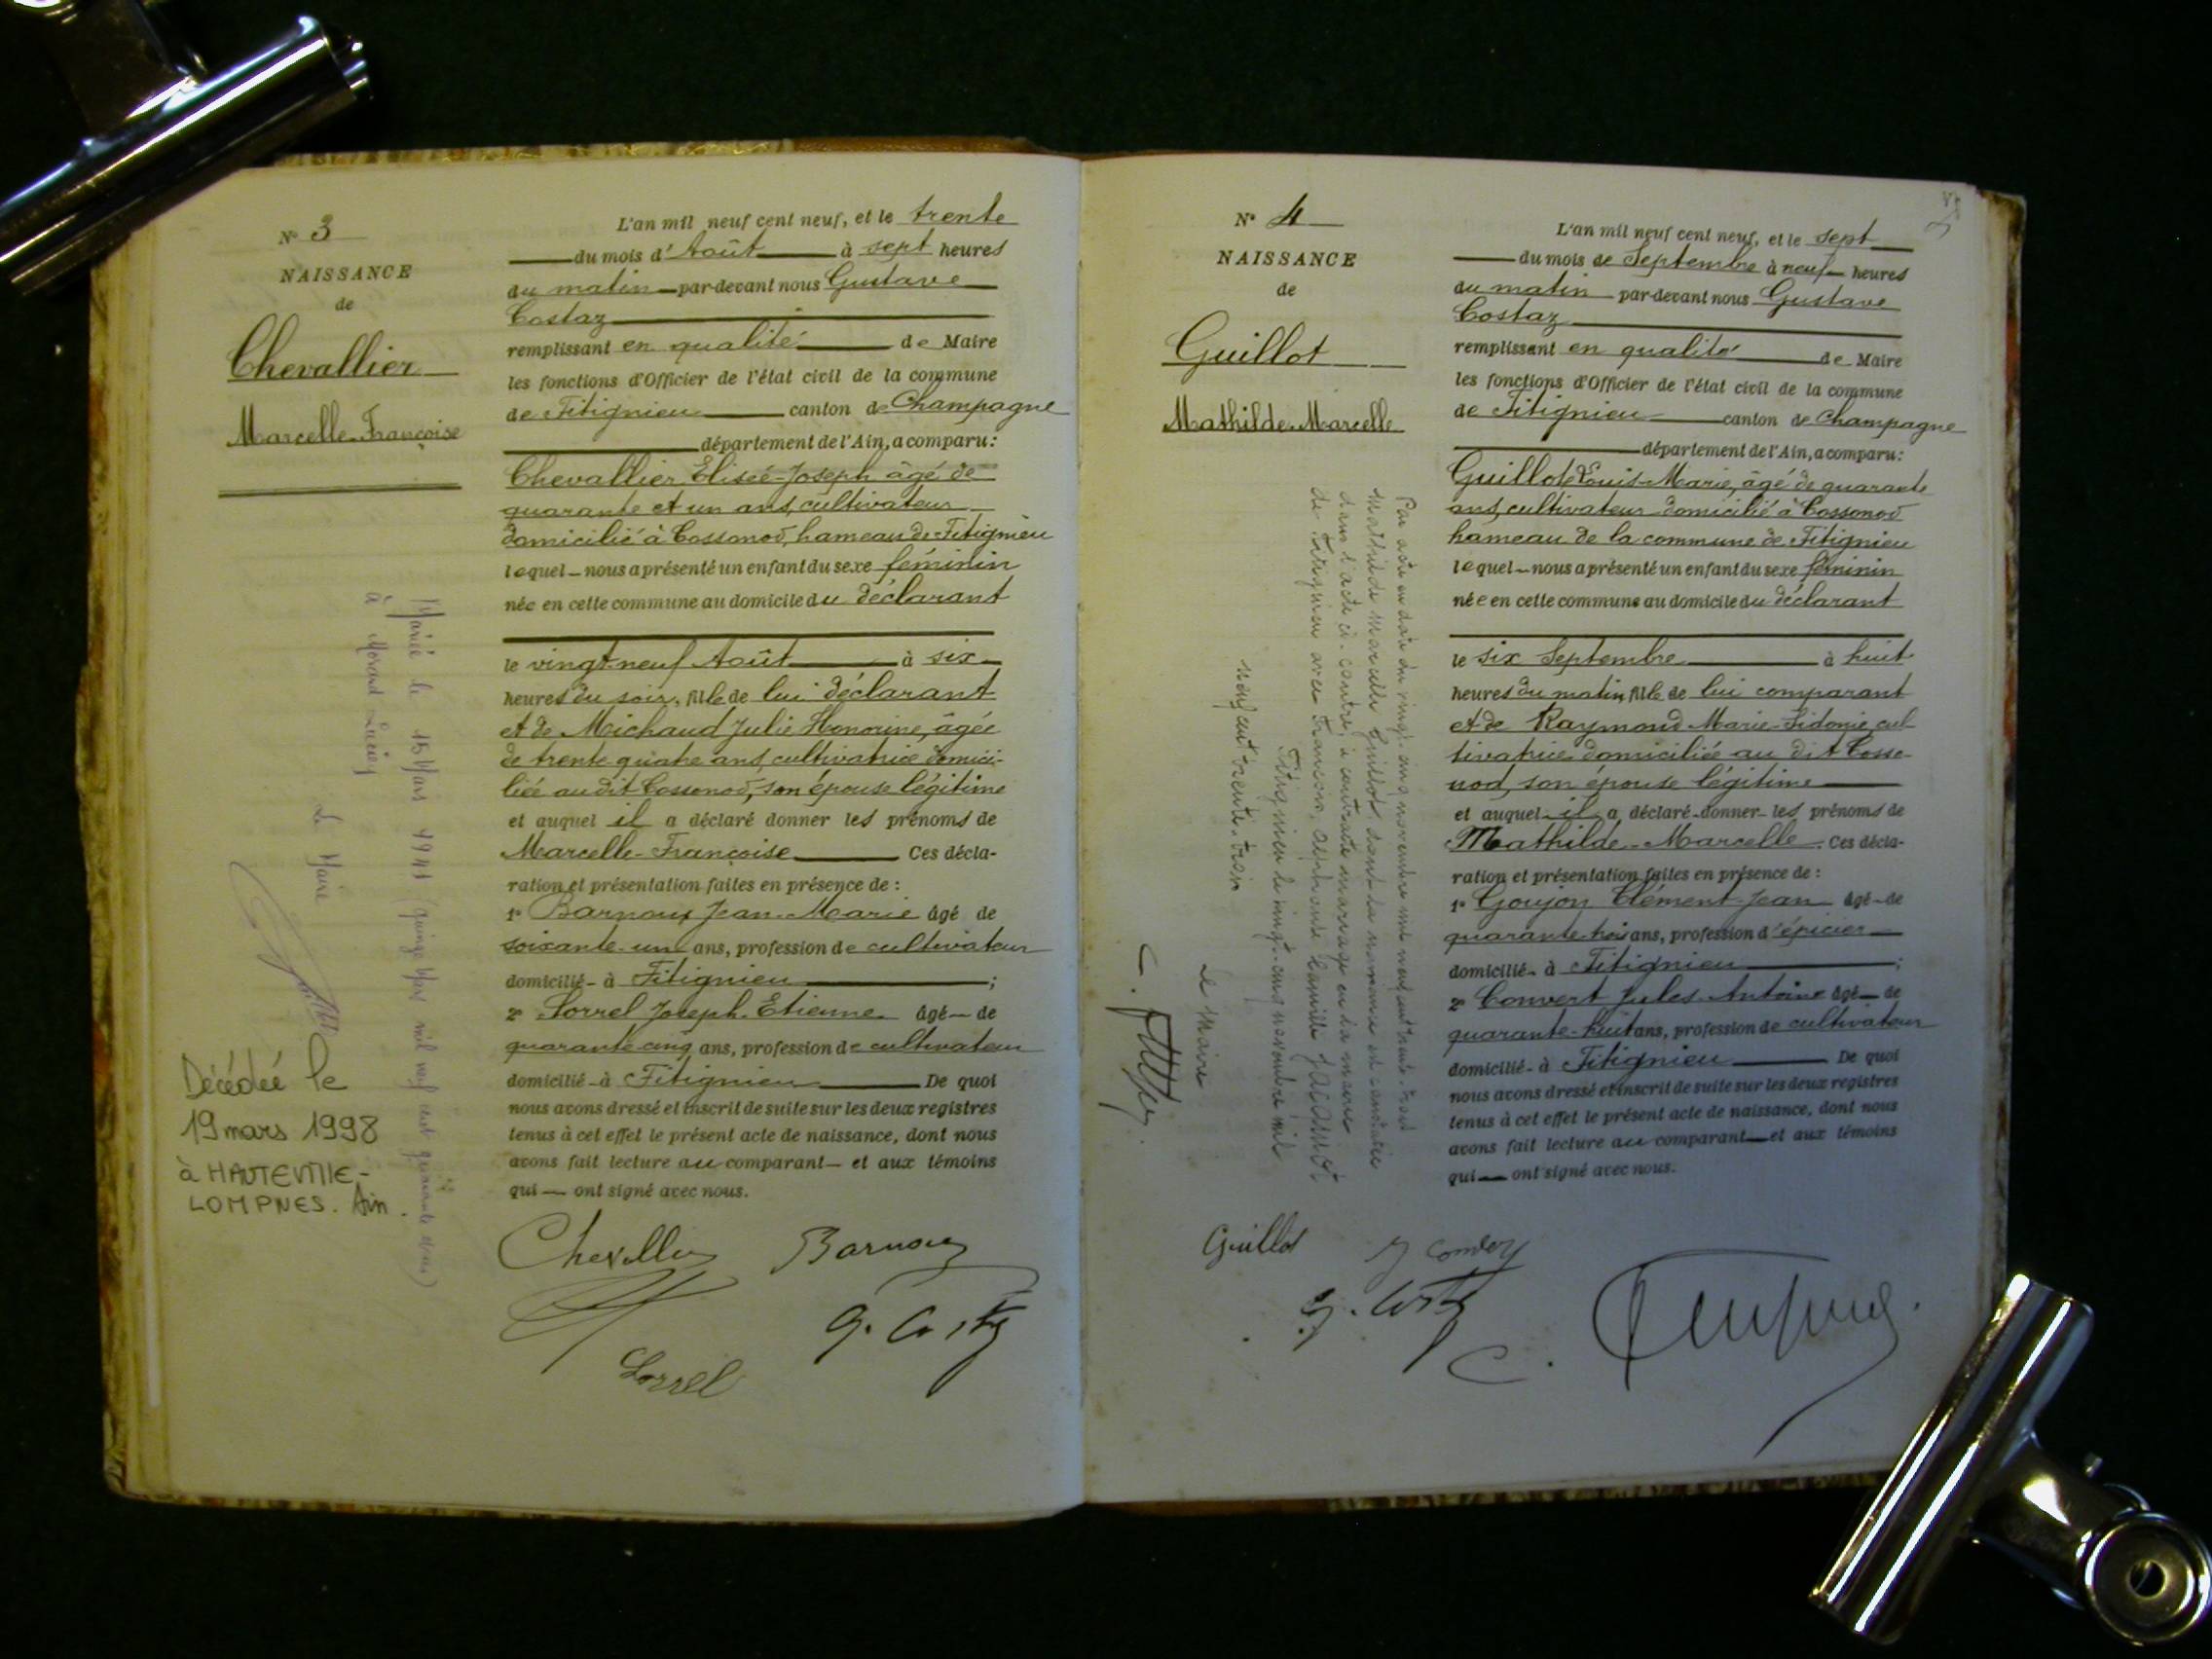 N° 3
NAISSANCE
de
Chevallier
Marcelle-Françoise
L'an mil neuf cent neuf, et le trente
du mois d'Août à sept heures
du matin par-devant nous Gustave
Costaz
remplissant en qualité de Maire
les fonctions d'Officier de l'état civil de la commune
de Fitignieu canton de Champagne
département de l'Ain, a comparu:
Chevallier Elisée-Joseph âgé de
quarante et un ans, cultivateur
domicilié à Cossonod, hameau de Fitignieu
lequel nous a présenté un enfant du sexe féminin
née en cette commune au domicile du déclarant
le vingt-neuf Août à six
heures du soir, fille de lui déclarant
et de Michaud Julie Honorine, âgée
de trente quatre ans, cultivatrice domici-
liée au dit Cossonod, son épouse légitime
et auquel il a déclaré donner les prénoms de
Marcelle-Françoise Ces décla-
ration et présentation faites en présence de :
1° Barnoux Jean-Marie âgé de
soixante-un ans, profession de cultivateur
domicilié à Fitignieu ;
2° Sorrel Joseph-Etienne âgé de
quarante-cinq ans, profession de cultivateur
domicilié à Fitignieu De quoi
nous avons dressé et inscrit de suite sur les deux registres
tenus à cet effet le présent acte de naissance, dont nous
avons fait lecture au comparant et aux témoins
qui ont signé avec nous.
Mariée le 15 Mars 1941 (quinze Mars mil neuf cent quarante un)
à Morand Lucien
Le Maire
Décédée le
19 mars 1998
à HAUTEVILLE-
LOMPNES. Ain.
Chevallier Barnoux
G. Costaz
Sorrel
N° 4
NAISSANCE
de
Guillot
Mathilde-Marcelle
L'an mil neuf cent neuf, et le sept
du mois de Septembre à neuf heures
du matin par-devant nous Gustave
Costaz
remplissant en qualité de Maire
les fonctions d'Officier de l'état civil de la commune
de Fitignieu canton de Champagne
département de l'Ain, a comparu:
Guillot Louis-Marie, âgé de quarante
ans, cultivateur domicilié à Cossonod
hameau de la commune de Fitignieu
lequel nous a présenté un enfant du sexe féminin
née en cette commune au domicile du déclarant
le six Septembre à huit
heures du matin, fille de lui comparant
et de Raymond Marie-Sidonie, cul-
tivatrice domiciliée au dit Cosso-
nod, son épouse légitime
et auquel il a déclaré donner les prénoms de
Mathilde-Marcelle. Ces décla-
ration et présentation faites en présence de :
1° Goujon Clément-Jean âgé de
quarante-trois ans, profession d'épicier
domicilié à Fitignieu ;
2° Convert Jules-Antoine âgé de
quarante-huit ans, profession de cultivateur
domicilié à Fitignieu De quoi
nous avons dressé et inscrit de suite sur les deux registres
tenus à cet effet le présent acte de naissance, dont nous
avons fait lecture au comparant et aux témoins
qui ont signé avec nous.
Par acte en date du vingt-cinq novembre mil neuf cent trente-trois
Mathilde Marcelle Guillot, dont la naissance est constatée
dans l'acte ci-contre, a contracté mariage en la mairie
de Fitignieu avec François, Alphonse Camille Jacquet
Fitignieu le vingt-cinq novembre mil
neuf cent trente-trois
Le Maire
Guillot
G. Costaz